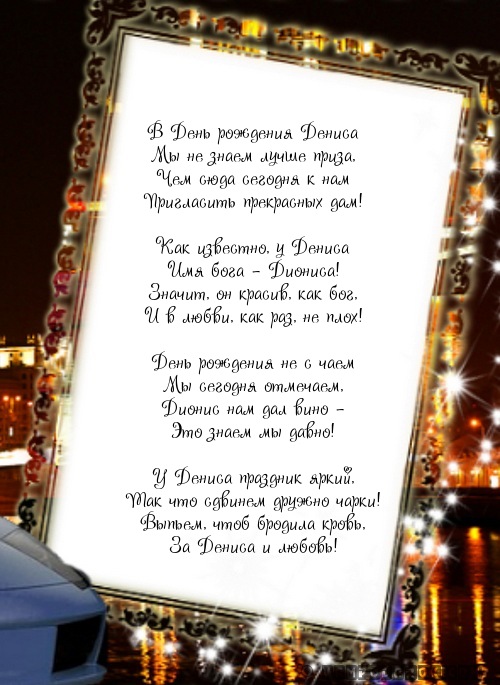 В День рождения Дениса
Мы не знаем лучше приза,
Чем сюда сегодня к нам
Пригласить прекрасных дам!
Как известно, у Дениса
Имя бога – Диониса!
Значит, он красив, как бог,
И в любви, как раз, не плох!
День рождения не с чаем
Мы сегодня отмечаем,
Дионис нам дал вино –
Это знаем мы давно!
У Дениса праздник яркий,
Так что сдвинем дружно чарки!
Выпьем, чтоб бродила кровь,
За Дениса и любовь!